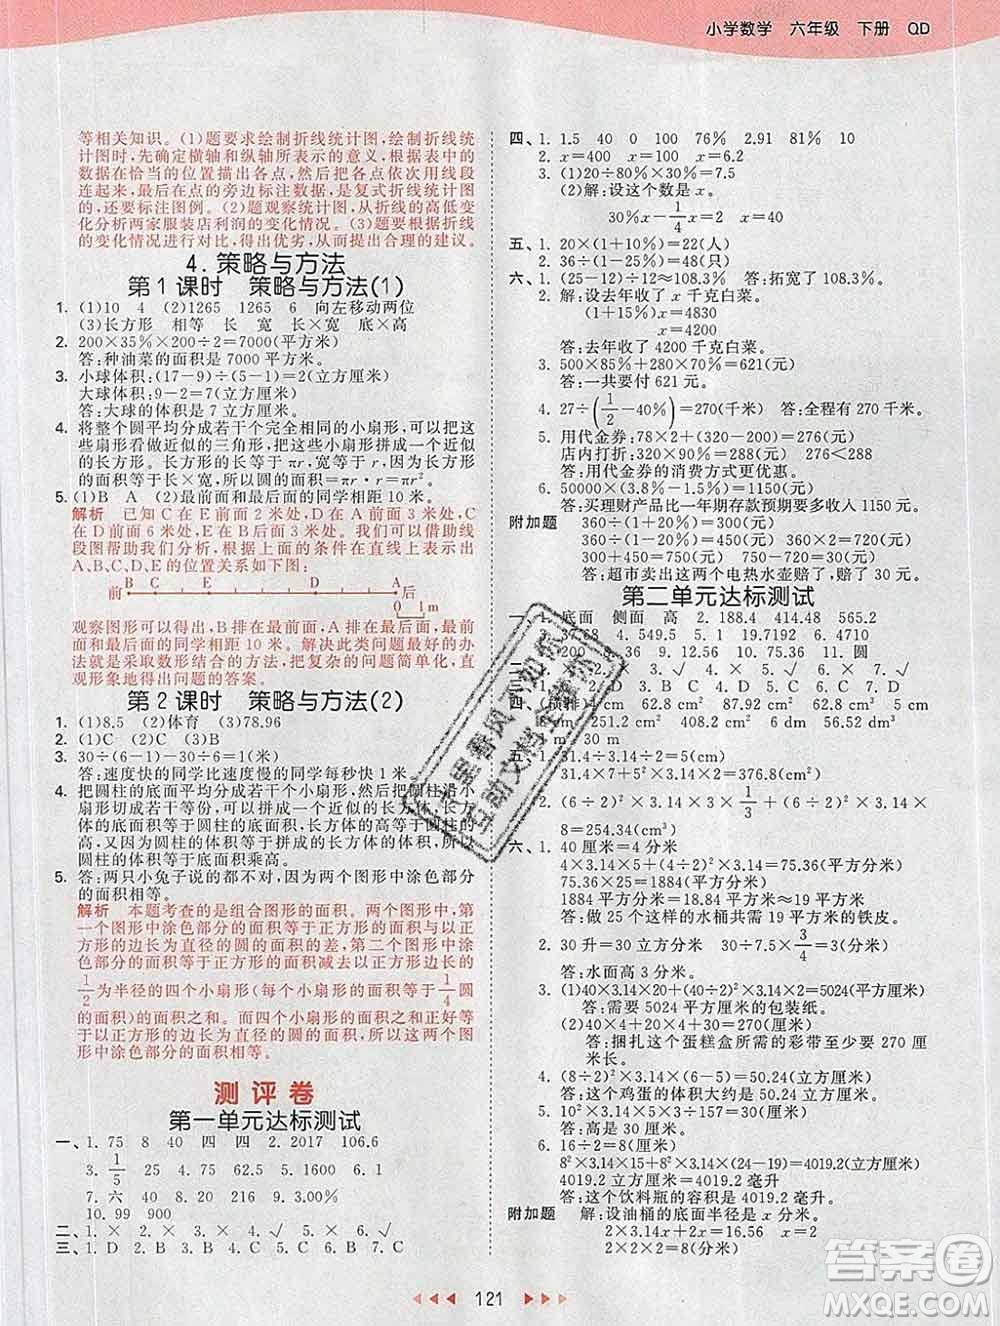 小学数学 六年级 下册 QD
等相关知识。(1)题要求绘制折线统计图,绘制折线统
计图时,先确定横轴和纵轴所表示的意义,根据表中的
数据在恰当的位置描出各点,然后把各点依次用线段
连起来,最后在点的旁边标注数据,是复式折线统计图
的,还要标注图例。(2)题观察统计图,从折线的高低变
化分析两家服装店利润的变化情况。(3)题要根据折线
的变化情况进行对比,得出优劣,从而提出合理的建议。
4.策略与方法
第1课时 策略与方法(1)
1. (1)10 4 (2)1265 1265 6 向左移动两位
(3)长方形 相等 长 宽 长×宽 底×高
2. 200×35%×200÷2=7000(平方米)
答:种油菜的面积是 7000 平方米。
3. 小球体积:(17-9)÷(5-1)=2(立方厘米)
大球体积:9-2=7(立方厘米)
答:大球的体积是 7 立方厘米。
4. 将整个圆平均分成若干个完全相同的小扇形,可以把这
些扇形看做近似的三角形,把这些小扇形拼成一个长方
形。长方形的长等于 πr,宽等于 r(r为圆的半径),长方形
的面积等于长×宽,所以圆的面积=πr×r=πr²。
5. (1)B A (2)最前面和最后面的同学相距 10 米。
解析 已知 C 在 E 前面 2 米处,D 在 A 前面 3 米处,B
在 D 前面 6 米处,A 在 E 后面 5 米处。我们可以借助线
段图帮助我们分析,根据上面的条件在直线上表示出
A、B、C、D、E 的位置关系如下图:
前 B C E D A 后
0 1m
观察图形可以得出,B 在最前面,A 在最后面,最前面的
同学与最后面的同学相距 10 米。解决此类问题最好的办
法就是采取数形结合的方法,把复杂的问题简单化,直
观形象地得出问题的答案。
第2课时 策略与方法(2)
1. (1)8.5 (2)体育 (3)78.96
2. (1)C (2)C (3)B
3. 30÷(6-1)-30÷6=1(米)
答:速度快的同学比速度慢的同学每秒快 1 米。
4. 把圆柱的底面平均分成若干个小扇形,然后把圆柱沿小
扇形切成若干等份,可以拼成一个近似的长方体,长方
体的底面积等于圆柱的底面积,长方体的高等于圆柱的
高,又因为长方体的体积等于底面积乘高,所以圆柱的
体积等于底面积乘高。
5. 答:两只小兔子说的都不对,因为两个图形中涂色部分
的面积相等。
解析 本题考查的是组合图形的面积。两个图形中,第
一个图形中涂色部分的面积等于正方形的面积与以正
方形的边长为直径的圆的面积的差,第二个图形中涂色
部分的面积等于正方形的面积减去以正方形的边长的
1/2 为半径的四个小扇形(每个小扇形都是一个圆的
1/4)的面积之和。而四个小扇形的面积之和正好等于
以正方形的边长为直径的圆的面积,所以这两个图形
中涂色部分的面积相等。
测评卷
第一单元达标测试
一、1. 75 8 40 四 四 2. 2017 106.6
3. 1/5 25 4. 75 62.5 5. 1600 6. 1
7. 六 40 8. 20 216 9. 3.00%
10. 99 900
二、1. × 2. × 3. × 4. √ 5. √
三、1. D 2. B 3. D 4. D 5. C
四、1. 1.5 40 0 100 76% 2.91 81% 10
2. x=400 x=100 x=6.2
3. (1)20÷80%×30%=7.5
(2)解:设这个数是 x。
30%x-1/4x=2 x=40
五、1. 20×(1+10%)=22(人)
2. 36÷(1-25%)=48(只)
六、1. (25-12)÷12≈108.3% 答:拓宽了 108.3%。
2. 解:设去年收了 x 千克白菜。
(1+15%)x=4830
x=4200
答:去年收了 4200 千克白菜。
3. 500×85%+280×70%=621(元)
答:一共要付 621 元。
4. 27÷(1/2-40%)=270(千米) 答:全程有 270 千米。
5. 用代金券:78×2+(320-200)=276(元)
店内打折:320×90%=288(元) 276<288
答:用代金券的消费方式更优惠。
6. 50000×(3.8%-1.5%)=1150(元)
答:买理财产品比一年期存款预期要多收入 1150 元。
附加题 360÷(1+20%)=300(元)
360÷(1-20%)=450(元) 360×2=720(元)
300+450=750(元) 750-720=30(元)
答:超市卖出这两个电热水壶赔了,赔了 30 元。
第二单元达标测试
一、1. 底面 侧面 高 2. 188.4 414.48 565.2
3. 37.68 4. 549.5 5. 1 19.7192 6. 4710
200 8. 36 9. 12.56 10. 75 11. 圆
3. √ 4. × 5. √ 6. × 7. √
C 3. D 4. C 5. C 6. D 7. C
四、(横排)4 cm 62.8 cm² 87.92 cm² 62.8 cm³ 4 cm
cm 251.2 cm² 408.2 cm² 6 dm 56.52 dm³
m 30 m
五、1. 31.4÷3.14÷2=5(cm)
31.4×7+3.14×5²×2=376.8(cm²)
2. (6÷2)²×3.14×3×1/3+(6÷2)²×3.14×
8=254.34(cm³)
六、1. 40 厘米=4 分米
4×3.14×5+3.14×(4÷2)²=75.36(平方分米)
75.36×25=1884(平方分米)
1884 平方分米=18.84 平方米≈19 平方米
答:做 25 个这样的水桶共需 19 平方米的铁皮。
2. 30 升=30 立方分米 30÷7.5×3/4=3(分米)
答:水面高 3 分米。
3. (1)40×3.14×20+(40÷2)²×3.14×2=5024(平方厘米)
答:需要 5024 平方厘米的包装纸。
(2)40×4+20×4+30=270(厘米)
答:捆扎这个蛋糕盒所需的彩带至少要 270 厘米。
4. (8÷2)²×3.14×(6-5)=50.24(立方厘米)
答:这个鸡蛋的体积大约是 50.24 立方厘米。
5. 10²×3.14×3×157=30(厘米)
答:高是 30 厘米。
6. 16÷2=8(厘米)
8²×3.14×15+8²×3.14×(24-19)=4019.2(立方厘米)
4019.2 立方厘米=4019.2 毫升
答:这个饮料瓶的容积是 4019.2 毫升。
附加题 解:设油桶的底面半径是 x 分米。
2×3.14x+2x=16.56 x=2
2×2×2=8(分米)
121
答案卷
MXQE.COM